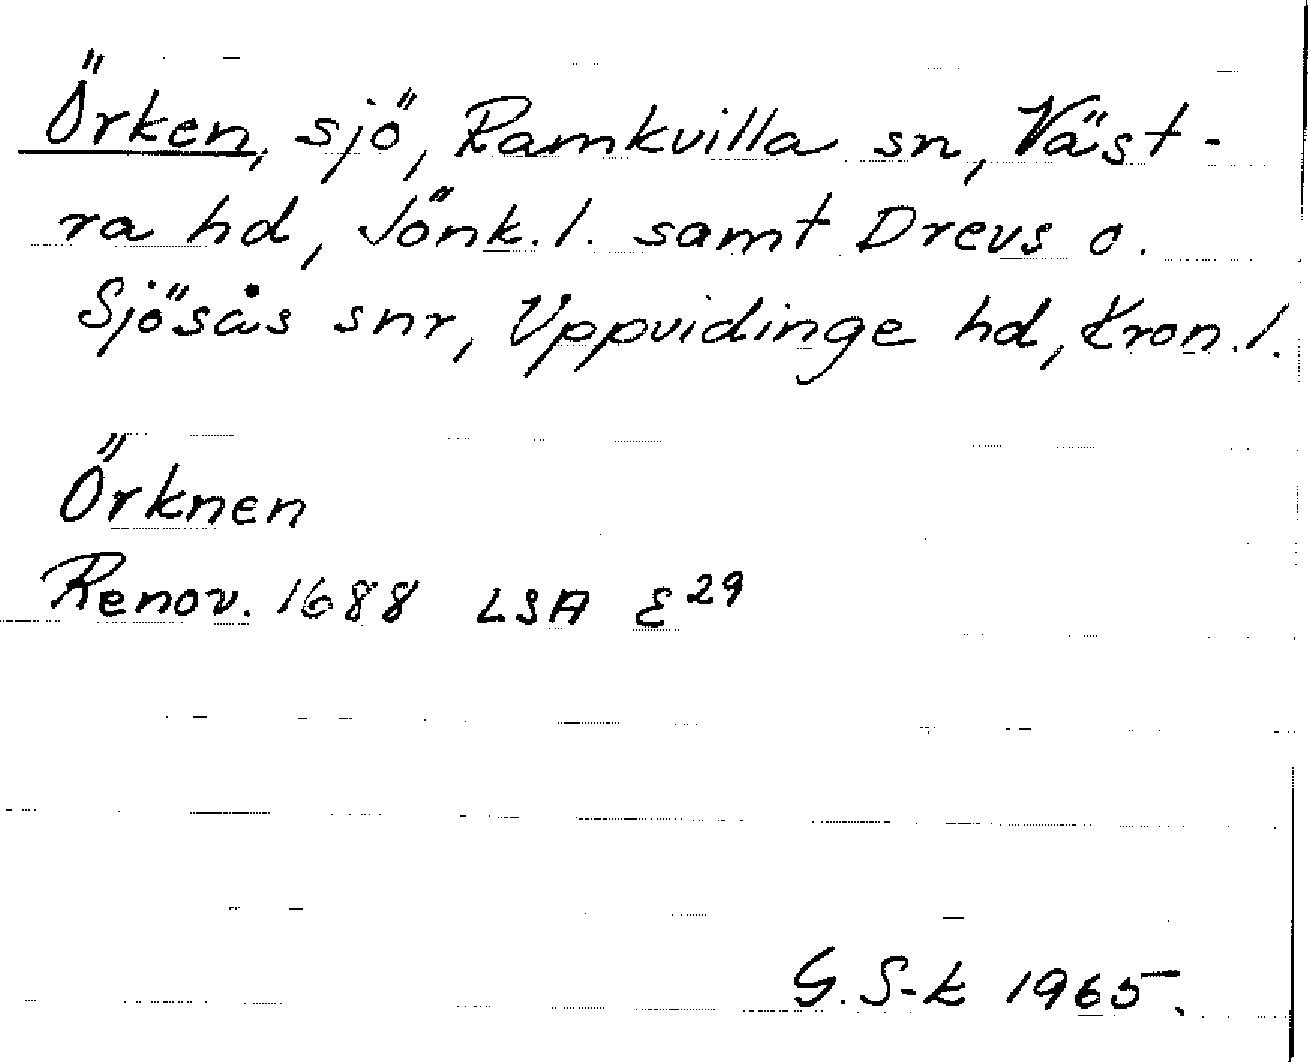 Örken, sjö, Ramkvilla sn, Väst-
ra hd, Jönk.l. samt Drevs o.
Sjösås snr, Uppvidinge hd, Kron.l.
Örknen
Renov. 1688 LSA E29
G. S-k 1965.